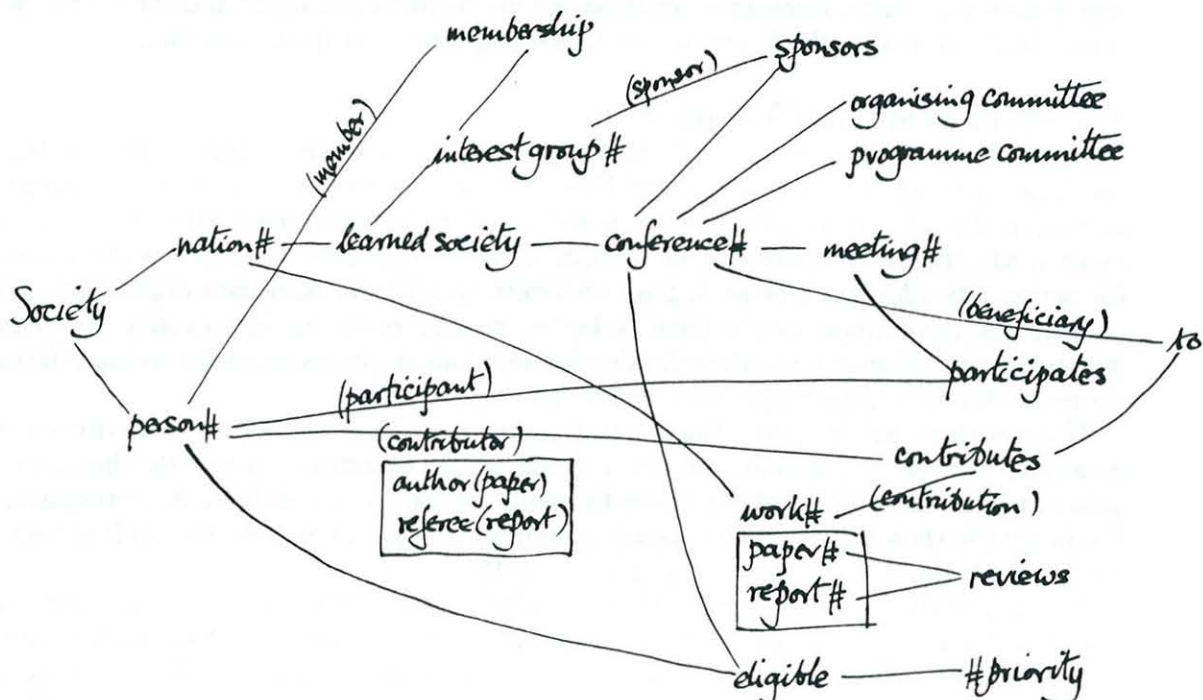 membership
sponsors
(sponsor)
organising committee
(member)
interest group #
programme committee
nation#
learned society
conference#
meeting#
Society
(beneficiary)
to
(participant)
participates
person#
(contributor)
contributes
author(paper)
referee(report)
work#
(contribution)
paper#
report#
reviews
eligible
#priority